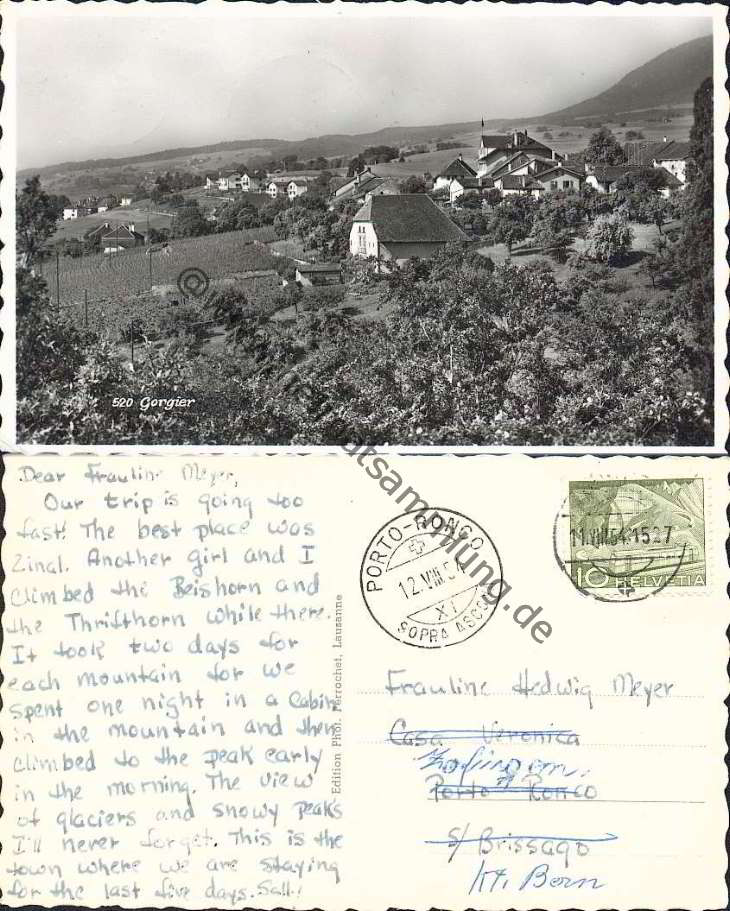 520 Gorgier
Dear Frauline Meyer,
Our trip is going too
fast! The best place was
Zinal. Another girl and I
climbed the Beishorn and
the Thrifthorn while there.
It took two days for
each mountain for we
spent one night in a cabin
in the mountain and then
climbed to the peak early
in the morning. The view
of glaciers and snowy peaks
I'll never forget. This is the
town where we are staying
for the last five days. Sally
Edition Phot. Perrochet, Lausanne
PORTO-RONCO
12.VIII.54
XI
SOPRA ASCONA
11.VIII.54.15
10 HELVETIA
Frauline Hedwig Meyer
Casa Veronica
Porto Ronco
s/ Brissago
Kt. Bern